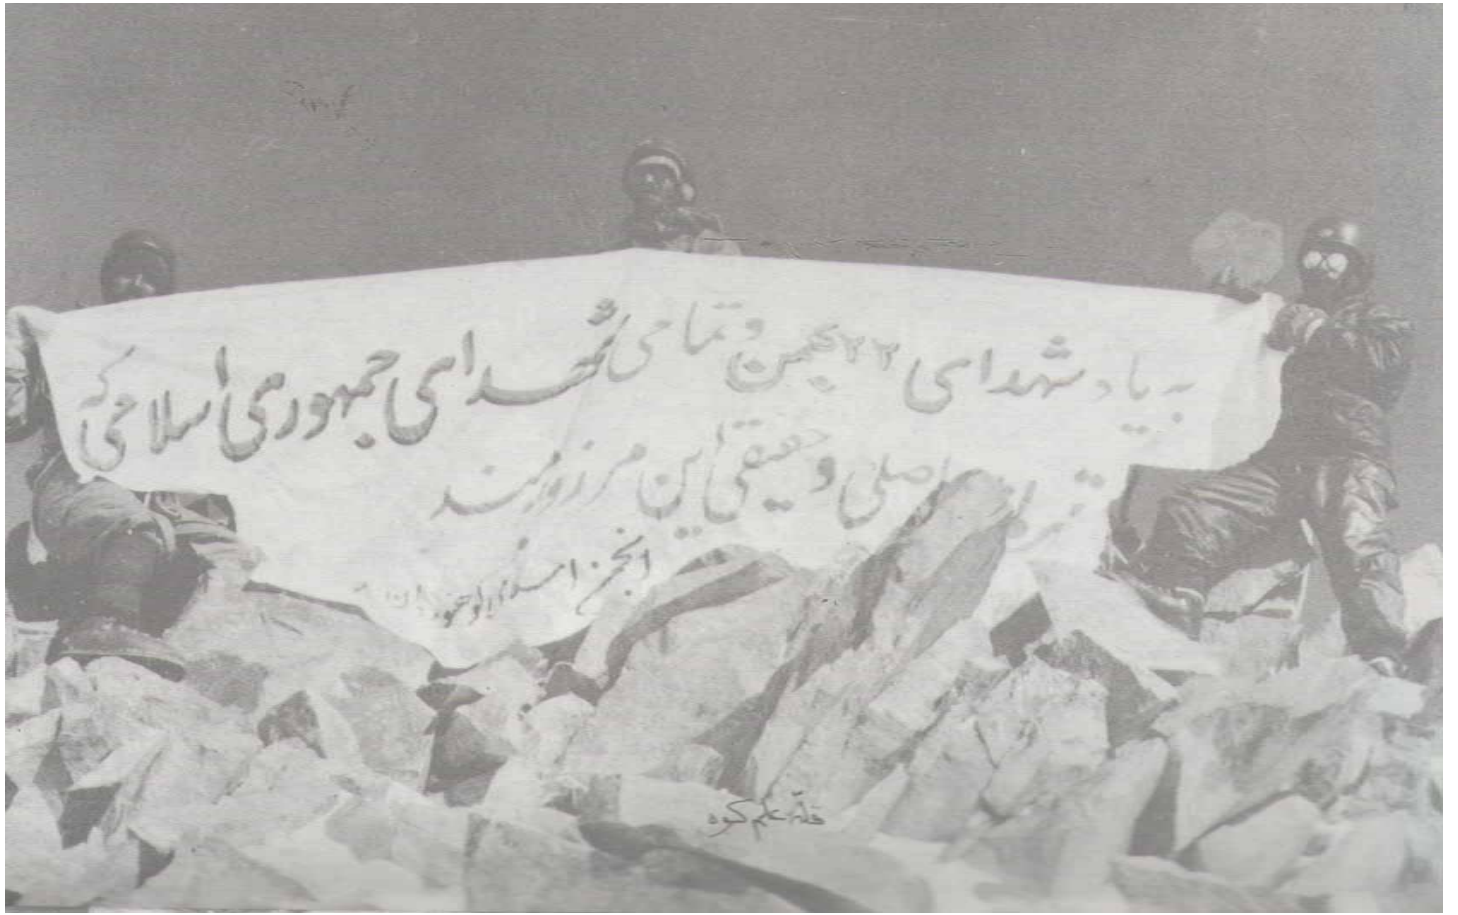 به یاد شهدای ۲۲ بهمن و تمامی شهدای جمهوری اسلامی که
اصلی و حقیقی این مرز و بومند
انجمن
قله علم کوه